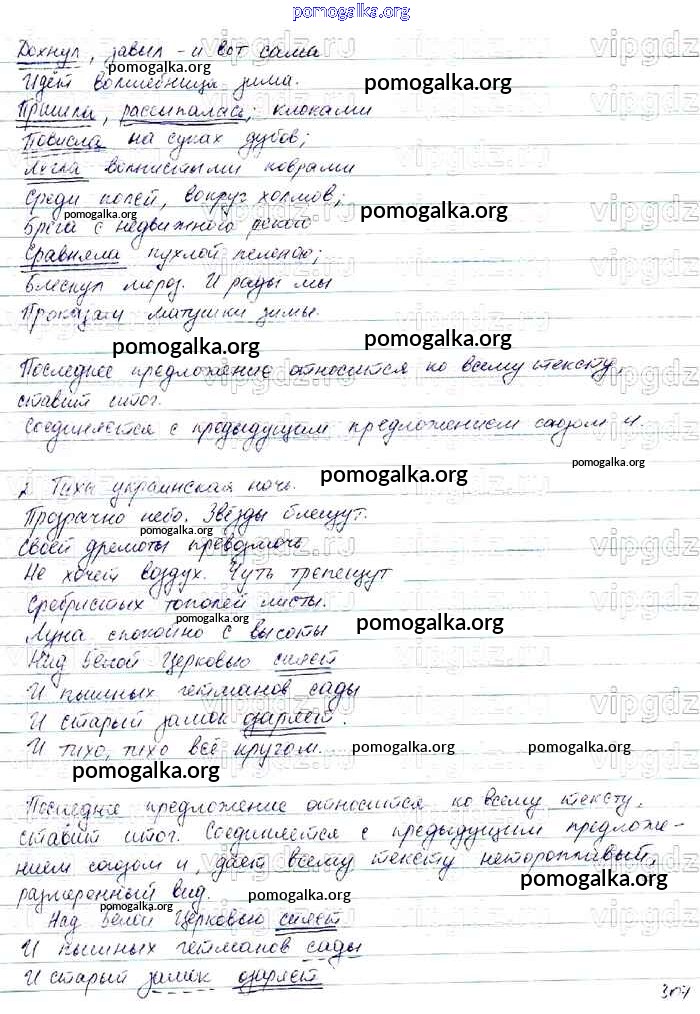 pomogalka.org
Дохнул, завыл - и вот сама
pomogalka.org
Идёт волшебница зима.
pomogalka.org
Пришла, рассыпалась; клоками
Повисла на суках дубов;
Легла волнистыми коврами
Среди полей, вокруг холмов;
pomogalka.org
pomogalka.org
Брега с недвижною рекою
Сравняла пухлой пеленою;
Блеснул мороз. И рады мы
Проказам матушки зимы.
pomogalka.org
pomogalka.org
Последнее предложение относится ко всему тексту,
ставит итог.
Соединяется с предыдущим предложением союзом и.
pomogalka.org
2. Тиха украинская ночь.
pomogalka.org
Прозрачно небо. Звёзды блещут.
pomogalka.org
Своей дремоты превозмочь
Не хочет воздух. Чуть трепещут
Сребристых тополей листы.
pomogalka.org
Луна спокойно с высоты
pomogalka.org
Над Белой Церковью сияет
И пышных гетманов сады
И старый замок озаряет.
И тихо, тихо всё кругом.
pomogalka.org
pomogalka.org
pomogalka.org
Последнее предложение относится ко всему тексту,
ставит итог. Соединяется с предыдущим предложе-
нием союзом и, даёт всему тексту неторопливый,
pomogalka.org
размеренный вид.
pomogalka.org
Над Белой Церковью сияет
pomogalka.org
И пышных гетманов сады
И старый замок озаряет
vipgdz.ru